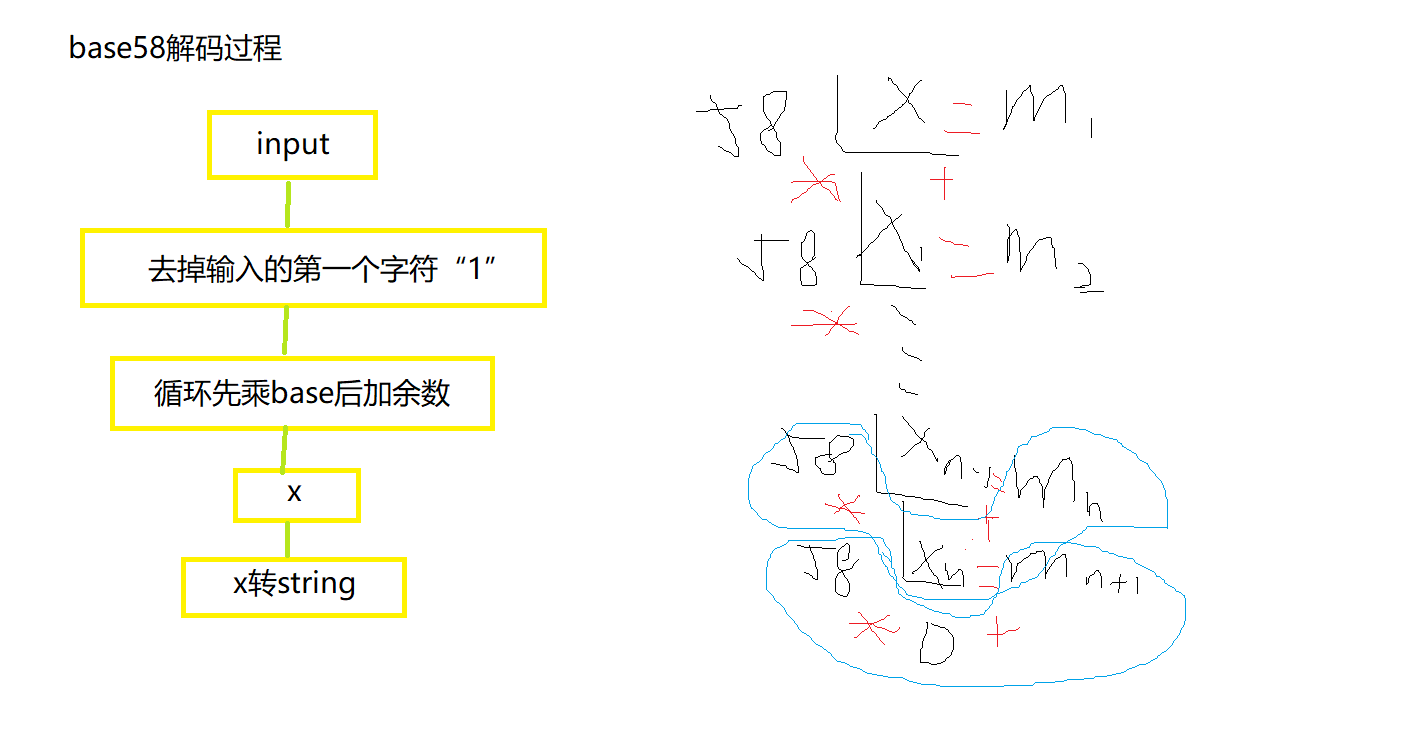 base58解码过程
input
去掉输入的第一个字符“1”
循环先乘base后加余数
x
x转string
58 x = m1
* +
58 x1 = m2
*
58 xn-1 = mn
* +
58 xn = mn+1
* 0 +